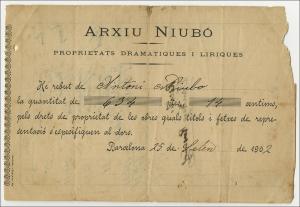 ARXIU NIUBÓ
PROPRIETATS DRAMATIQUES I LIRIQUES
He rebut de Antoni Niubo
la quantitat de 634 14 centims,
pels drets de proprietat de les obres quals titols i fetxes de repre-
sentació s'especifiquen al dors.
Barcelona 25 de de 1902